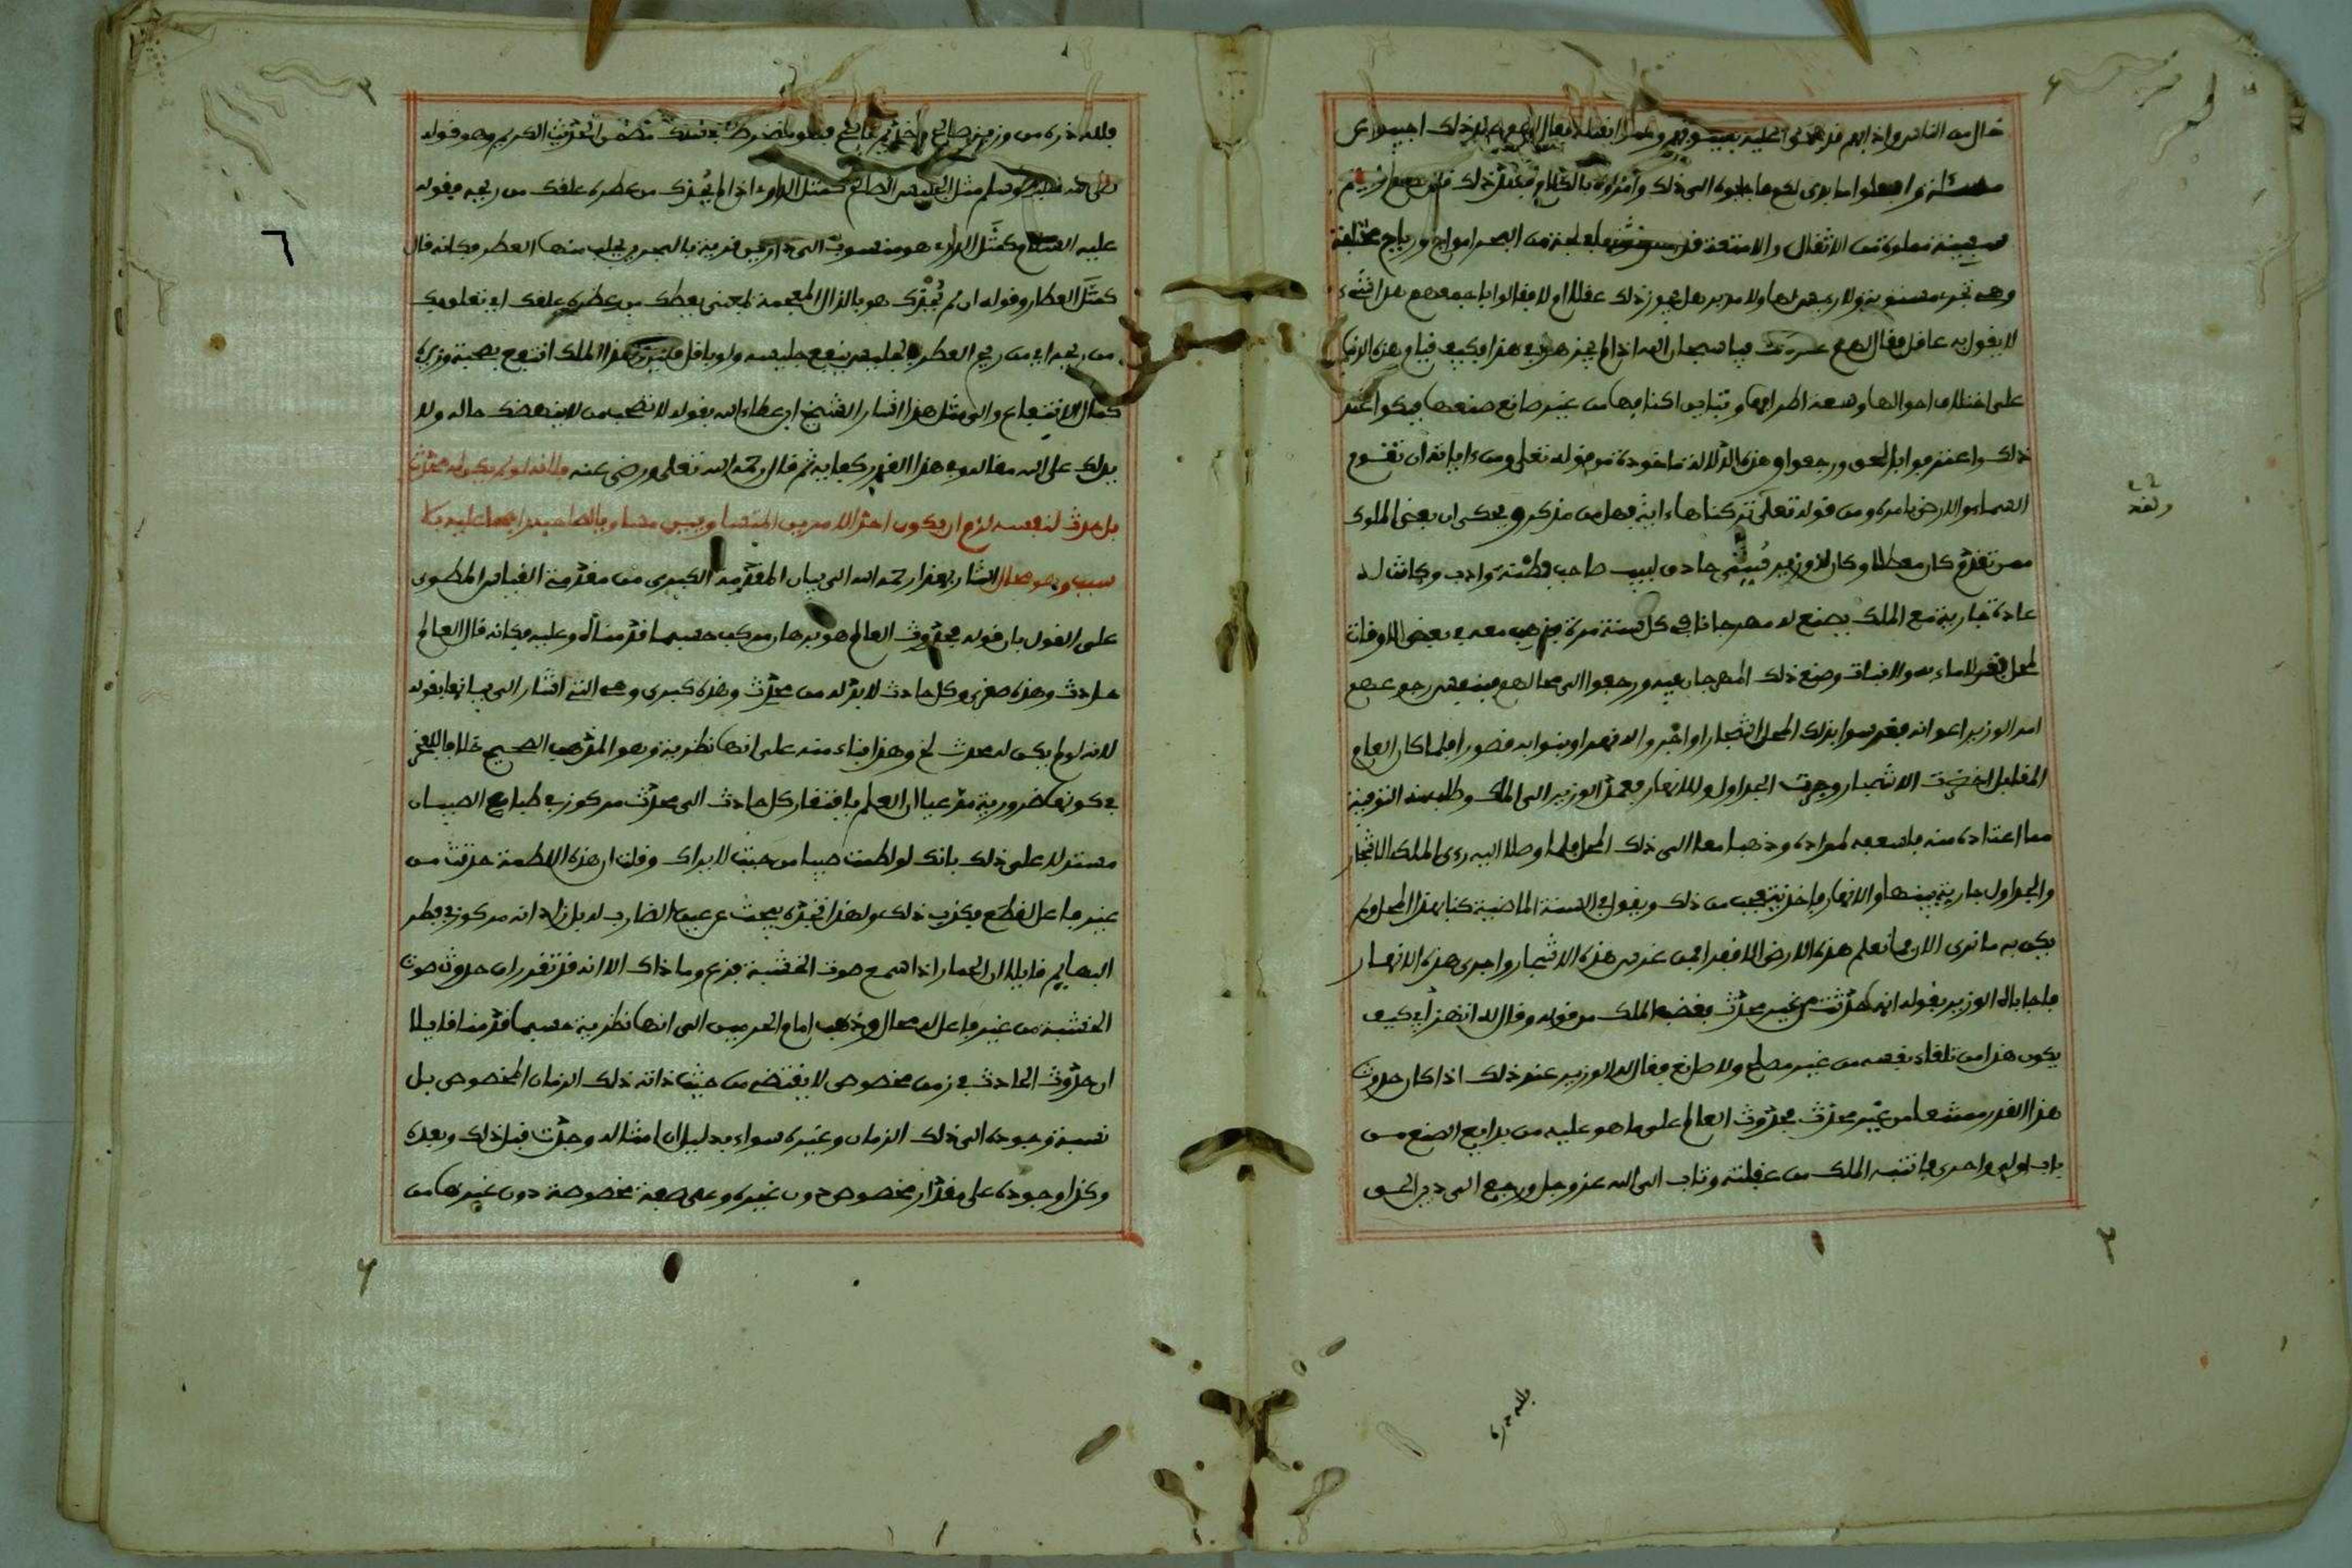 خال من الناس واذا بهم قد هجموا عليه بسيوفهم وهموا بقتله فقال لهم بعد ذلك اجيبوني عن
مسئلة وافعلوا ما بدى لكم فاجابوه الى ذلك وأمروه بالكلام فعند ذلك قال لهم ارأيتم
سفينة مملوءة من الاثقال والامتعة قد في لجة من البحر امواج ورياح مختلفة
وهي تجري مستوية ولا رئيس لها ولا مدبر هل يجوز ذلك عقلا او لا فقالوا باجمعهم هذا شيء
لا يقول به عاقل فقال لهم عند ذلك فيا سبحان الله اذا لم يجز هذا فكيف قيام هذه الدنيا
على اختلاف احوالها وسعة اطرافها وتباين اكنافها من غير صانع صنعها فبكوا عند
ذلك واعترفوا بالحق ورجعوا وهذه الدلالة ماخوذة من قوله تعلى ومن ءاياته أن تقوم
السماء والارض بامره ومن قوله تعلى تركناها ءاية فهل من مذكر ويحكى ان بعض الملوك
ممن تقدم كان معطلا وكان له وزير سني حاذق لبيب صاحب فطنة وادب وكانت له
عادة جارية مع الملك يصنع له مهرجانا في كل سنة مرة فذهب معه في بعض الاوقات
لمحل قفر لا ماء به ولا نبات وصنع ذلك المهرجان فيه ورجعوا الى محالهم رجوعهم
امر الوزير اعوانه فغرسوا بذلك المحل اشجارا واجروا له نهرا وبنوا به قصورا فلما كان العام
المقابل اخضرت الاشجار وجرت الجداول والانهار فعمد الوزير الى الملك وطلب منه النزهة
مما اعتاده منه فاسعفه لمراده وذهبا معا الى ذلك المحل فلما وصلا اليه رءى الملك الاشجار
والجداول جارية بينها والانهار فاخذ يتعجب من ذلك ويقول في السنة الماضية كنا بهذا المحل ولم
يكن به ما نرى الان مما نعلم هذه الارض الا قفرا فمن غرس هذه الاشجار واجرى هذه الانهار
فاجابه الوزير بقوله انها حدثت من غير محدث فغضب الملك من قوله وقال له اتهزأ بي كيف
يكون هذا من تلقاء نفسه من غير مصلح ولا صانع فقال له الوزير عند ذلك اذا كان حدوث
هذا القدر ممتنعا من غير محدث فحدوث العالم على ما هو عليه من بدايع الصنع من
باب اولى واحرى فانتبه الملك من غفلته وتاب الى الله عز وجل ورجع الى دين الحق
فلله دره
فلله دره من وزير صالح فهو منخرط في سلك مضمن الحديث الكريم وهو قوله
صلى الله عليه وسلم مثل الجليس الصالح كمثل الداري اذا لم يحذك من عطره علقك من ريحه فقوله
عليه السلام كمثل الداري هو منسوب الى دارين قرية بالبحرين يجلب منها العطر فكانه قال
كمثل العطار وقوله ان لم يحذك هو بالذال المعجمة لمعنى يعطك من عطره علقك اي تعلق بك
من ريحه اي من ريح العطر فالجليس ينفع جليسه ولو باقل قليل فهذا الملك انتفع بصحبة وزيره
كمال الانتفاع والى مثل هذا اشار الشيخ ابن عطاء الله بقوله لا تصحب من لا ينهضك حاله ولا
يدلك على الله مقاله وفي هذا القدر كفاية ثم قال رحمه الله تعلى ورضي عنه فلانه لو لم يكن له محدث
بل حدث لنفسه لزم ان يكون احد الامرين المتساويين مساويا لصاحبه راجحا عليه بلا
سبب وهو محال اشار بهذا رحمه الله الى بيان المقدمة الكبرى من مقدمة القياس المطوي
على القول بان قوله فحدوث العالم هو برهان مركب حسبما قدمناه وعليه فكانه قال العالم
حادث وهذه صغرى وكل حادث لا بد له من محدث وهذه كبرى وهي التي اشار الى بيانها بقوله
لانه لو لم يكن له محدث الخ وهذا بناء منه على انها نظرية وهو المذهب الصحيح خلافا للفخر
في كونها ضرورية مدعيا ان العلم بافتقار كل حادث الى محدث مركوز في طبايع الصبيان
مستدلا على ذلك بانك لو لطمت صبيا من حيث لا يراك وقلت ان هذه اللطمة حدثت من
غير فاعل لقطع بكذب ذلك ولهذا تجده يبحث عن عين الضارب له بل زاد انه مركوز في فطر
البهايم قايلا ان الحمار اذا سمع صوت الخشبة فزع وما ذاك الا انه قد تقرر ان حدوث صوت
الخشبة من غير فاعل له محال وذهب امام الحرمين الى انها نظرية حسبما قدمنا قايلا
ان حدوث الحادث في زمن مخصوص لا يقتضي من حيث ذاته ذلك الزمان المخصوص بل
نسبة وجوده الى ذلك الزمان وغيره سواء بدليل ان امثاله وجدت قبل ذلك وبعده
وكذا وجوده على مقدار مخصوص دون غيره وعلى صفة مخصوصة دون غيرها من
٦